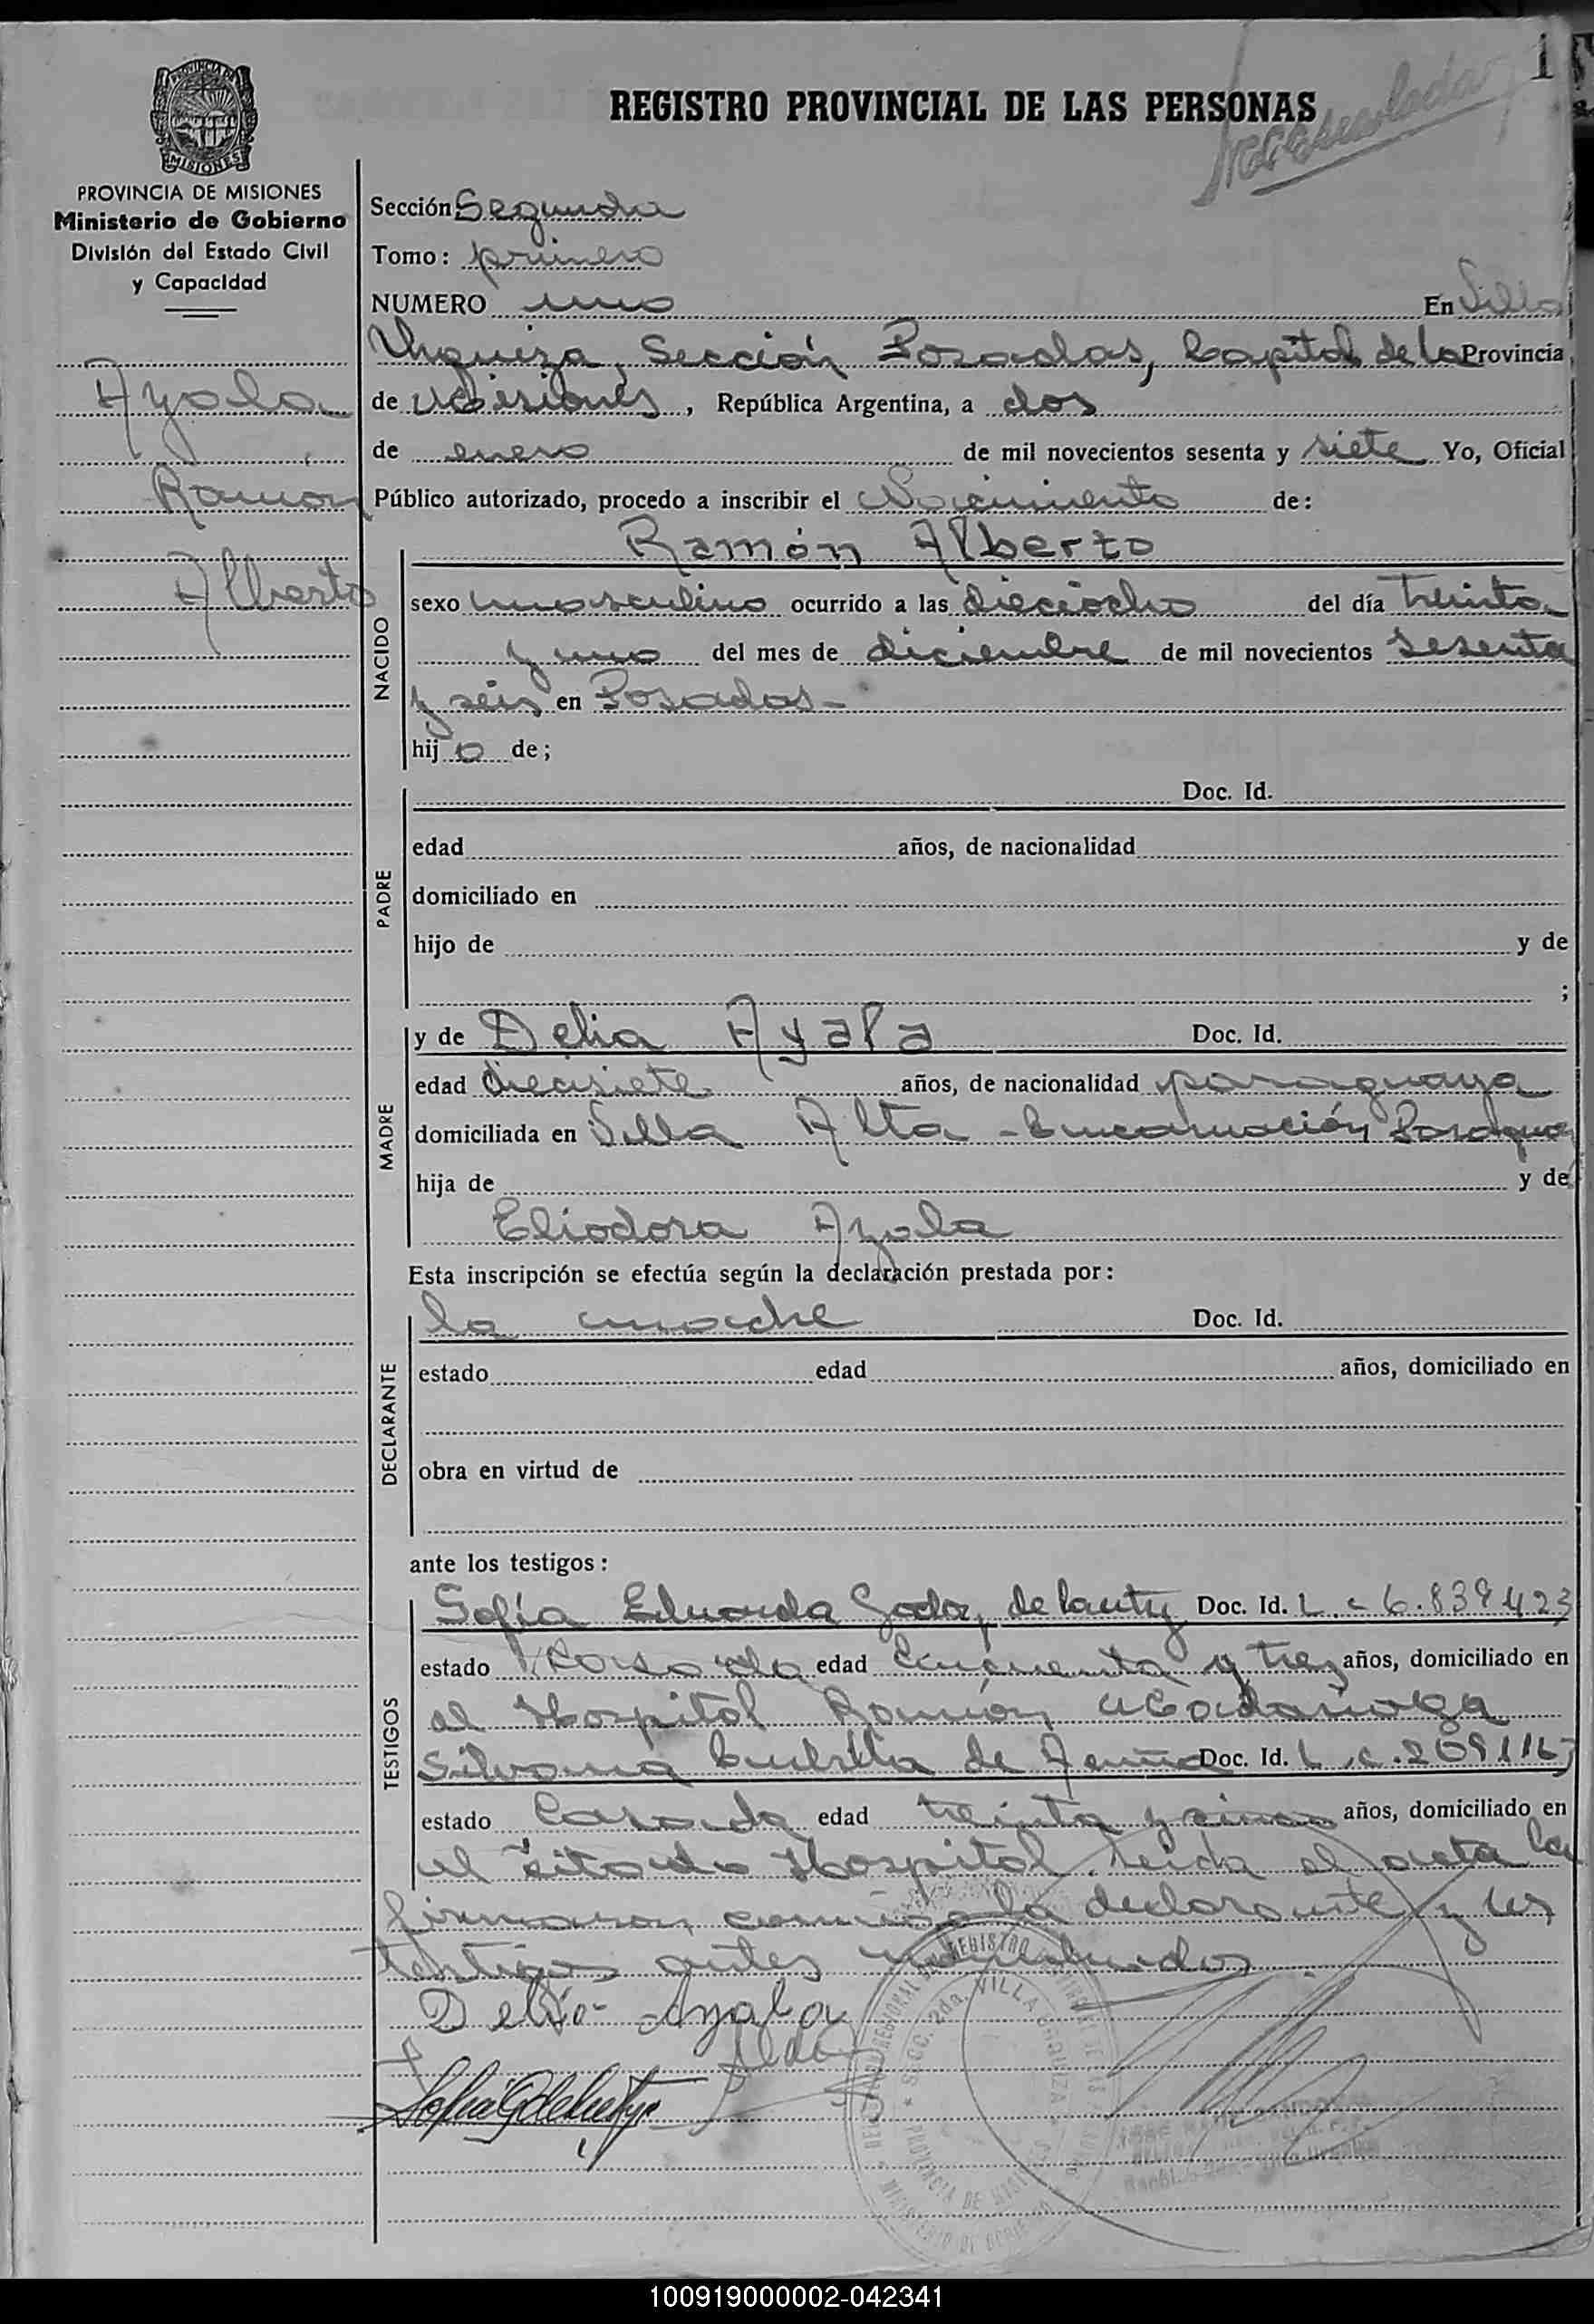 1
REGISTRO PROVINCIAL DE LAS PERSONAS
PROVINCIA DE MISIONES
MISIONES
PROVINCIA DE MISIONES
Ministerio de Gobierno
División del Estado Civil
y Capacidad
Ayala
Ramón
Alberto
Sección Segunda
Tomo: primero
NUMERO uno En Villa
Urquiza, Sección Posadas, Capital de la Provincia
de Misiones, República Argentina, a dos
de enero de mil novecientos sesenta y siete Yo, Oficial
Público autorizado, procedo a inscribir el Nacimiento de:
NACIDO
Ramón Alberto
sexo masculino ocurrido a las dieciocho del día treinta
y uno del mes de diciembre de mil novecientos sesenta
y seis en Posadas-
hijo de;
PADRE
Doc. Id.
edad años, de nacionalidad
domiciliado en
hijo de y de
;
MADRE
y de Delia Ayala Doc. Id.
edad diecisiete años, de nacionalidad paraguaya
domiciliada en Villa Alta - Encarnación Paraguay
hija de y de
Eliodora Ayala
Esta inscripción se efectúa según la declaración prestada por:
DECLARANTE
la madre Doc. Id.
estado edad años, domiciliado en
obra en virtud de
ante los testigos:
TESTIGOS
Sofía Eduarda Godoy de Doc. Id. L. c 6.839423
estado Casada edad cincuenta y tres años, domiciliado en
al Hospital Ramón Madariaga
Silvana de Doc. Id. L.c.
estado Casada edad treinta y cinco años, domiciliado en
el citado Hospital. Leida el acta la
firmaron conmigo la declarante y los
testigos antes nombrados.
Delia Ayala
REGISTRO
SECC. 2da. VILLA URQUIZA
PROVINCIA DE MISIONES
100919000002-042341